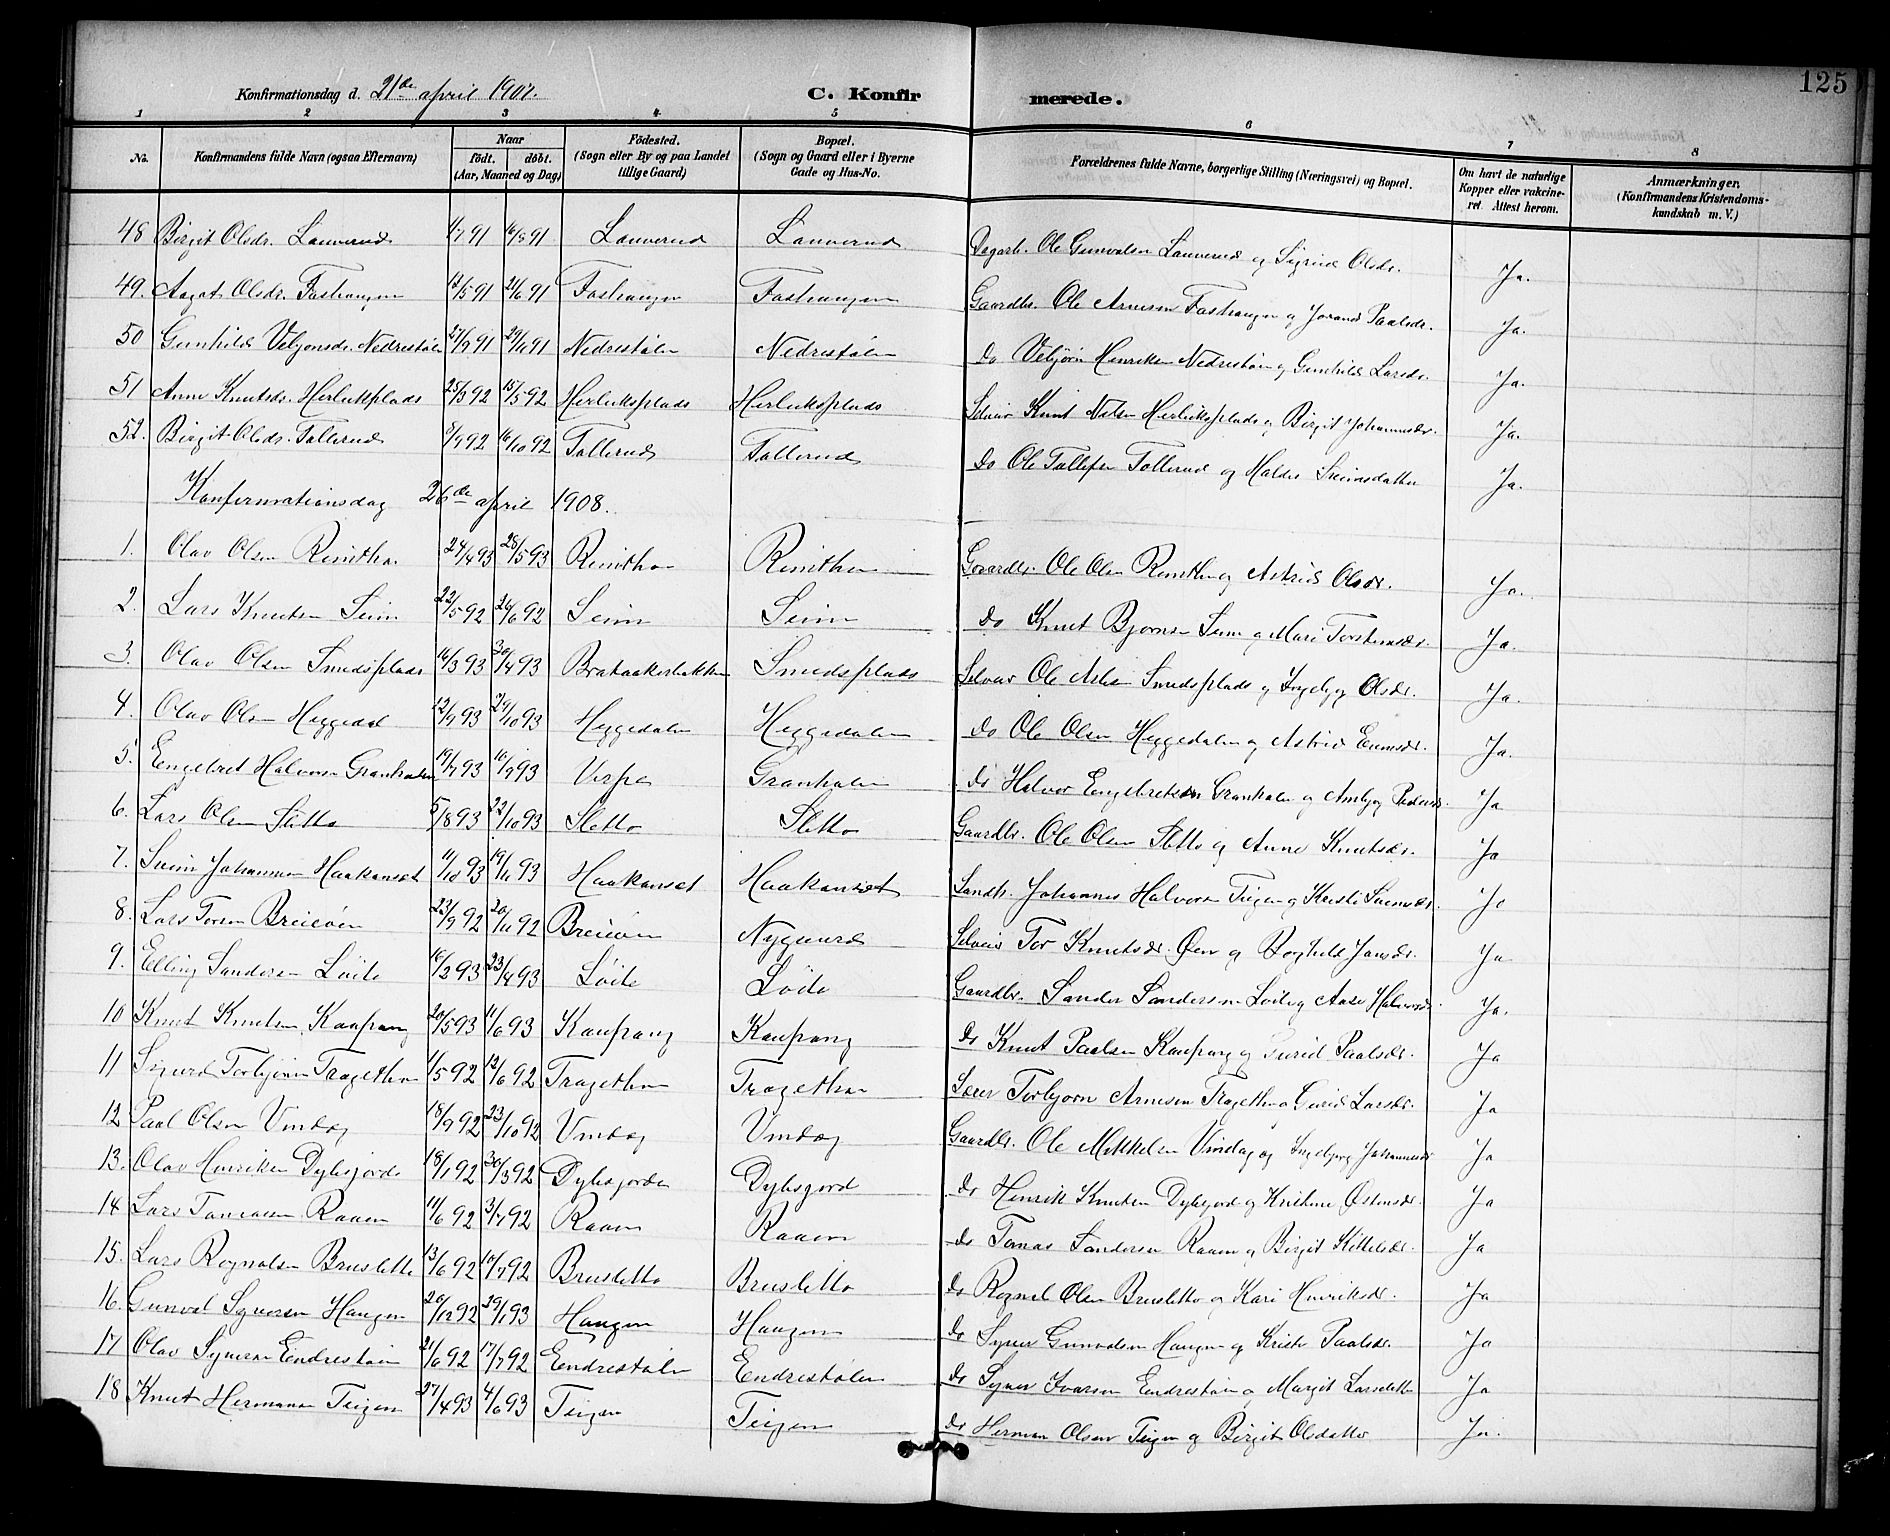 125
Konfirmationsdag d. 21de april 1907.
C. Konfirmerede.
1 2 3 4 5 6 7 8
No. Konfirmandens fulde Navn (ogsaa Efternavn) Naar födt. döbt. (Aar, Maaned og Dag) Födested. (Sogn eller By og paa Landet tillige Gaard) Bopæl. (Sogn og Gaard eller i Byerne Gade og Hus-No. Forældrenes fulde Navne, borgerlige Stilling (Næringsvei) og Bopæl. Om havt de naturlige Kopper eller vakcineret. Attest herom. Anmærkninger. (Konfirmandens Kristendomskundskab m. V.)
48 Birgit Olsdr. Lauverud 91 91 Lauverud Lauverud Dagarb. Ole Gunvalsen Lauverud og Sigrid Olsdr. Ja.
49. Aagot Olsdr. Fostraugen 12/5 91 21/6 91 Fostraugen Fostraugen Gaardbr. Ole Arnesen Fostraugen og Jorand Paalsdr. Ja.
50 Gunhild Vebjönsdr. Nedrestølen 27/9 91 29/11 91 Nedrestølen Nedrestølen do Vebjörn Henriksen Nedrestølen og Gunhild Larsdr. Ja.
51 Anne Knutsdr. Herleiksplads 25/3 92 15/5 92 Herleiksplads Herleiksplads Selveier Knut Nilsen Herleiksplads og Birgit Johannesdr. Ja.
52. Birgit Olsdr. Tollerud 92 16/10 92 Tollerud Tollerud do Ole Tollefsen Tollerud og Haldis Sveinsdatter Ja.
Konfirmationsdag 26de april 1908.
1. Olav Olsen Reinthon 24/4 93 28/5 93 Reinthon Reinthon Gaardbr. Ole Olsen Reinthon og Astrid Olsdr. Ja.
2. Lars Knutsen Seim 22/5 92 26/6 92 Seim Seim do Knut Bjørnsen Seim og Mari Torsteinsdr. Ja.
3. Olav Olsen Smedsplads 16/3 93 30/4 93 Brataakerbakken Smedsplads Selveier Ole Aslesen Smedsplads og Ingebjørg Olsdr. Ja.
4. Olav Olsen Heggedal 93 29/10 93 Heggedalen Heggedalen do Ole Olsen Heggedalen og Astrid Ja.
5. Engebret Halvorsen Granhalen 19/7 93 93 Vespe Granhalen do Halvor Engebretsen Granhalen og Ambjør Pedersdr. Ja
6. Lars Olsen Sletto 5/8 93 22/10 93 Sletto Sletto Gaardbr. Ole Olsen Sletto og Anne Knutsdr. Ja
7. Svein Johannesen Haakanset 11/10 93 19/11 93 Haakanset Haakanset Landh. Johannes Halvorsen Teigen og Kristi Sveinsdr. Ja
8. Lars Torsen Breieøen 23/9 92 20/11 92 Breieøen Nygaard Selveier Tor Knutsdr. Øen og Ragnhild Jonsdr. Ja
9. Elling Sandersen Löite 16/2 93 23/4 93 Löite Löite Gaardbr. Sander Sandersen Löite og Aase Halvorsdr. Ja.
10 Knut Knutsen Kaupang 20/5 93 11/6 93 Kaupang Kaupang do Knut Paalsen Kaupang og Turid Paalsdr. Ja
11 Sigurd Torbjörnsen Tragethon 1/5 92 12/6 92 Tragethon Tragethon Lærer Torbjørn Arnesen Tragethon og Guri Larsdr. Ja
12 Paal Olsen Vindeg 18/9 92 23/10 92 Vindeg Vindeg Gaardbr. Ole Mikkelsen Vindeg og Ingebjørg Johannesdr. Ja
13. Olav Henriksen Dybsjord 18/1 92 30/3 92 Dybsjorden Dybsjord do Henrik Knutsen Dybsjord og Kristine Østensdr. Ja
14 Lars Tomassen Raaen 11/6 92 3/7 92 Raaen Raaen do Tomas Sandersen Raaen og Birgit Kittelsdr. Ja
15. Lars Rognalsen Brusletto 13/6 92 10/7 92 Brusletto Brusletto do Rognal Olsen Brusletto og Kari Henriksdr. Ja
16. Gunval Syversen Haugen 20/12 92 29/1 93 Haugen Haugen do Syver Gunvalsen Haugen og Kristi Paalsdr. Ja
17 Olav Syversen Endrestølen 21/6 92 17/7 92 Endrestølen Endrestølen do Syver Ivarsen Endrestølen og Margit Larsdatter Ja
18 Knut Hermansen Teigen 27/4 93 4/6 93 Teigen Teigen do Herman Olsen Teigen og Birgit Olsdatter Ja.